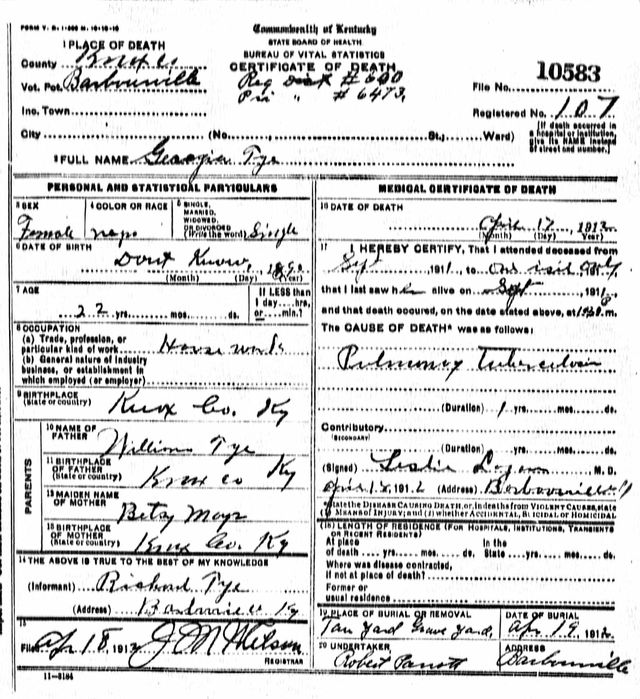 FORM V. S. 1-500 M. 10-10-10
Commonwealth of Kentucky
STATE BOARD OF HEALTH
BUREAU OF VITAL STATISTICS
CERTIFICATE OF DEATH
1 PLACE OF DEATH
County Knox Co
Vot. Pct. Barbourville
Inc. Town
City (No. St.; Ward)
Reg Dist # 600
Pri " # 6473
File No. 10583
Registered No. 107
[If death occurred in a hospital or institution, give its NAME instead of street and number.]
2 FULL NAME Georgia Tye
PERSONAL AND STATISTICAL PARTICULARS
3 SEX
Female
4 COLOR OR RACE
5 SINGLE, MARRIED, WIDOWED, OR DIVORCED (Write the word) Single
6 DATE OF BIRTH
Dont Know, 1890
(Month) (Day) (Year)
7 AGE
22 yrs. mos. ds.
If LESS than 1 day, hrs. or min.?
8 OCCUPATION
(a) Trade, profession, or particular kind of work House work
(b) General nature of industry business, or establishment in which employed (or employer)
9 BIRTHPLACE
(State or country) Knox Co. Ky
PARENTS
10 NAME OF FATHER William Tye
11 BIRTHPLACE OF FATHER (State or country) Knox co Ky
12 MAIDEN NAME OF MOTHER Betsy Mays
13 BIRTHPLACE OF MOTHER (State or country) Knox Co. Ky
14 THE ABOVE IS TRUE TO THE BEST OF MY KNOWLEDGE
(Informant) Richard Tye
(Address) Barbourville Ky
15
Filed Apr 18 1912 J M Wilson
REGISTRAR
11-3184
MEDICAL CERTIFICATE OF DEATH
16 DATE OF DEATH
April 17, 1912
(Month) (Day) (Year)
17 I HEREBY CERTIFY, That I attended deceased from
Sept 1911, to One visit only
that I last saw her alive on Sept, 191
and that death occured, on the date stated above, at m.
The CAUSE OF DEATH* was as follows:
Pulmonary Tuberculosis
(Duration) 1 yrs. mos. ds.
Contributory
(SECONDARY)
(Duration) yrs. mos. ds.
(Signed) Leslie Logan M. D.
April 18, 1912 (Address) Barbourville
*State the DISEASE CAUSING DEATH, or, in deaths from VIOLENT CAUSES, state (1) MEANS OF INJURY; and (2) whether ACCIDENTAL, SUICIDAL OR HOMICIDAL
18 LENGTH OF RESIDENCE (FOR HOSPITALS, INSTITUTIONS, TRANSIENTS OR RECENT RESIDENTS)
At place of death yrs. mos. ds. In the State yrs. mos. ds.
Where was disease contracted, if not at place of death?
Former or usual residence
19 PLACE OF BURIAL OR REMOVAL
Tan Yard Grave Yard,
DATE OF BURIAL
Apr 19 1912
20 UNDERTAKER
Robert Parrott
ADDRESS
Barbourville